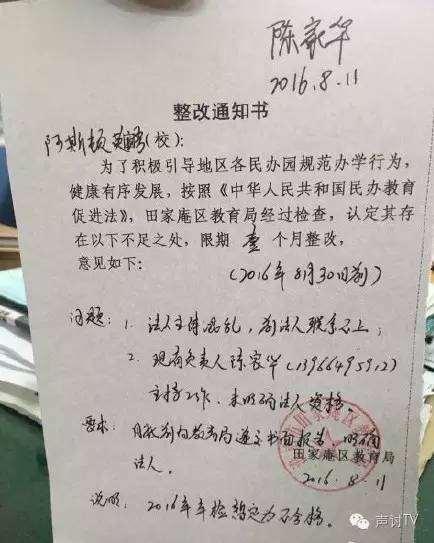 陈家华
2016.8.11
整改通知书
阿斯顿英语(校):
为了积极引导地区各民办园规范办学行为,
健康有序发展,按照《中华人民共和国民办教育
促进法》,田家庵区教育局经过检查,认定其存
在以下不足之处,限期 壹 个月整改,
意见如下:
(2016年8月30日前)
问题: 1. 法人主体混乱,前法人联系不上;
2. 现有负责人陈家华(13966495912)
主持工作,未明确法人资格.
要求: 月底前向教育局递交书面报告,明确
法人。
田家庵区教育局
2016.8.11
说明: 2016年年检暂定为不合格.
声讨TV